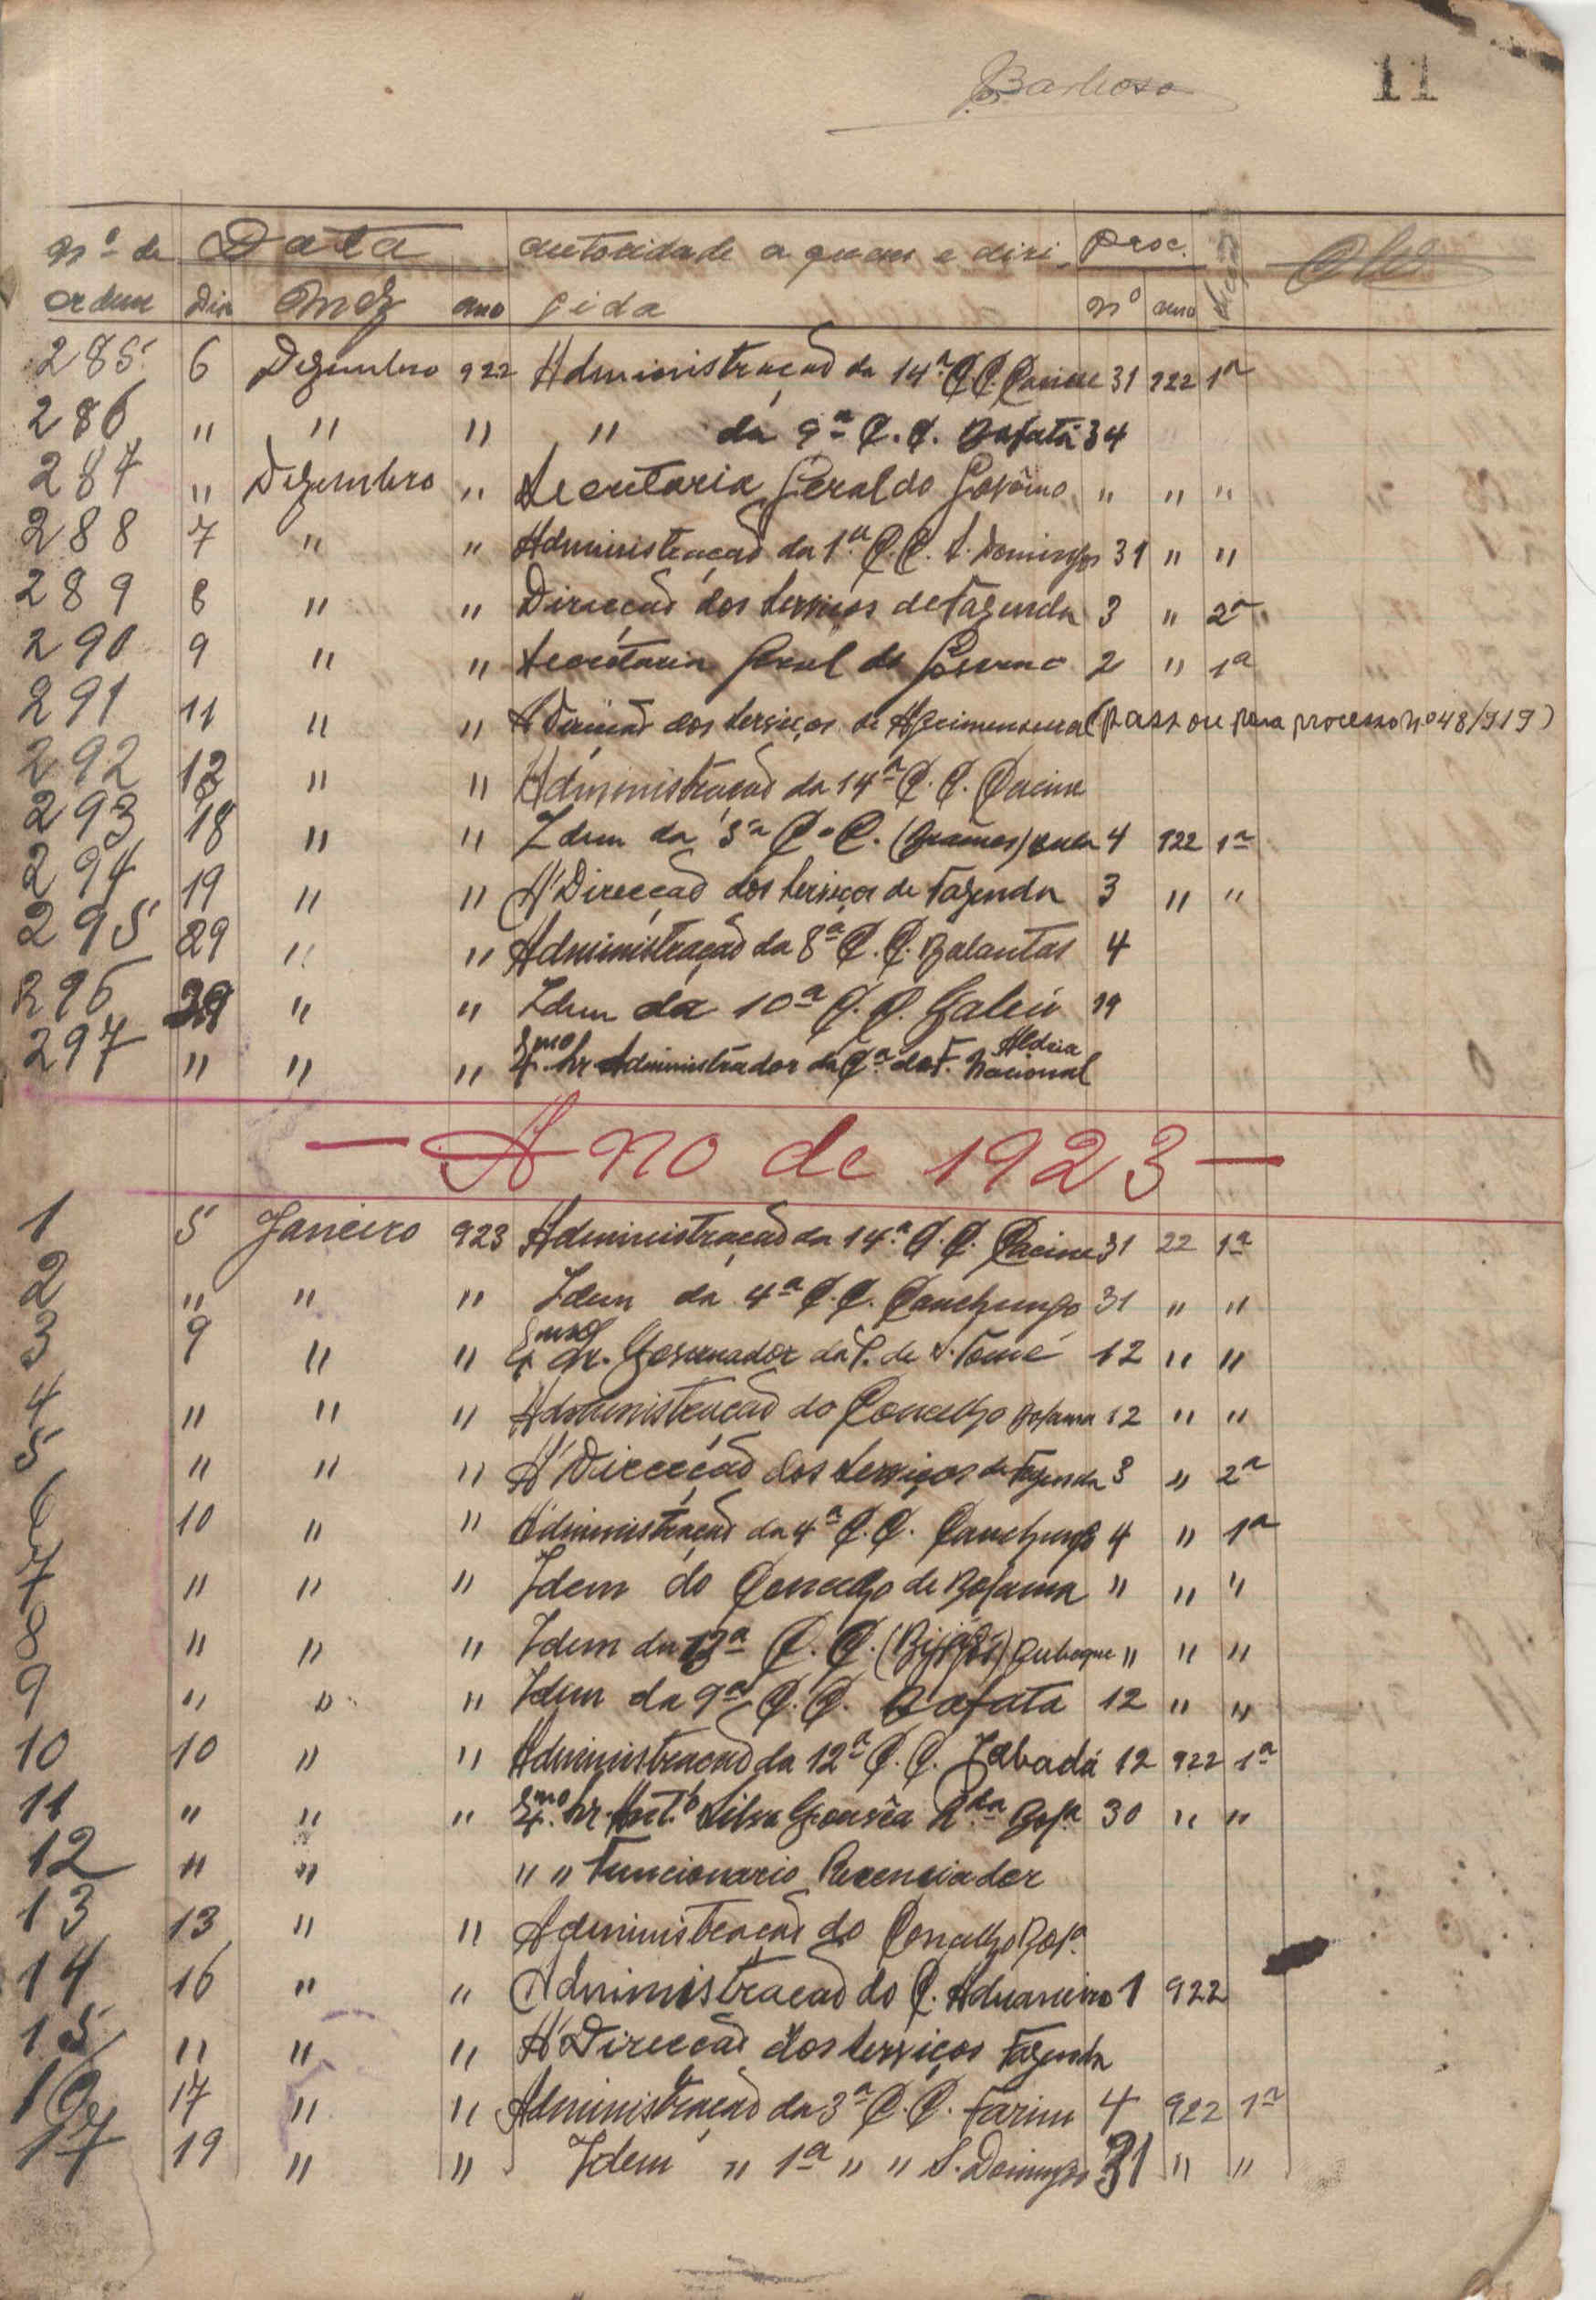 Barbosa
11
Nº de Data autoridade a quem e diri- Proc.
ordem Dia Mez ano gida nº ano
285 6 Dezembro 922 Administração da 14ª C.C. Cacine 31 922 1ª
286 " " " " da 9ª C.C. Bafatá 34
287 " Dezembro " Secretaria Geral do Govêrno " " "
288 7 " " Administração da 1ª C.C. S. Domingos 31 " "
289 8 " " Direcção dos serviços de Fazenda 3 " 2ª
290 9 " " Secretaria Geral do Governo 2 " 1ª
291 11 " " Á Direcção dos serviços de Agrimensura (passou para processo nº 48/919)
292 12 " " Administração da 14ª C.C. Cacine
293 18 " " Idem da 5ª C.C. 4 922 1ª
294 19 " " Á Direcção dos serviços de Fazenda 3 " "
295 29 " " Administração da 8ª C.C. Balantas 4
296 29 " " Idem da 10ª C.C. Gabú 19
297 " " " Exmo Sr Administrador da Cª do F. Aldeia Nacional
— Ano de 1923 —
1 5 Janeiro 923 Administração da 14ª C.C. Cacine 31 22 1ª
2 " " " Idem da 4ª C.C. Canchungo 31 " "
3 9 " " Exmo Sr. Governador da P. de S. Tomé 12 " "
4 " " " Administração do Concelho Bolama 12 " "
5 " " " Á Direcção dos serviços de Fazenda 3 " 2ª
6 10 " " Administração da 4ª C.C. Canchungo 4 " 1ª
7 " " " Idem do Concelho de Bolama " " "
8 " " " Idem da 13ª C.C. (Bijagós) Bubaque " " "
9 " " " Idem da 9ª C.C. Bafata 12 " "
10 10 " " Administração da 12ª C.C. Jabadá 12 922 1ª
11 " " " Exmo Sr. Antº Silva Gouvêa Bolª 30 " "
12 " " " " Funcionario Recenciador
13 13 " " Administração do Concelho Bolª
14 16 " " Administração do C. Aduaneiro 1 922
15 " " " Á Direcção dos serviços Fazenda
16 17 " " Administração da 3ª C.C. Farim 4 922 1ª
17 19 " " Idem " 1ª " " S. Domingos 31 " "